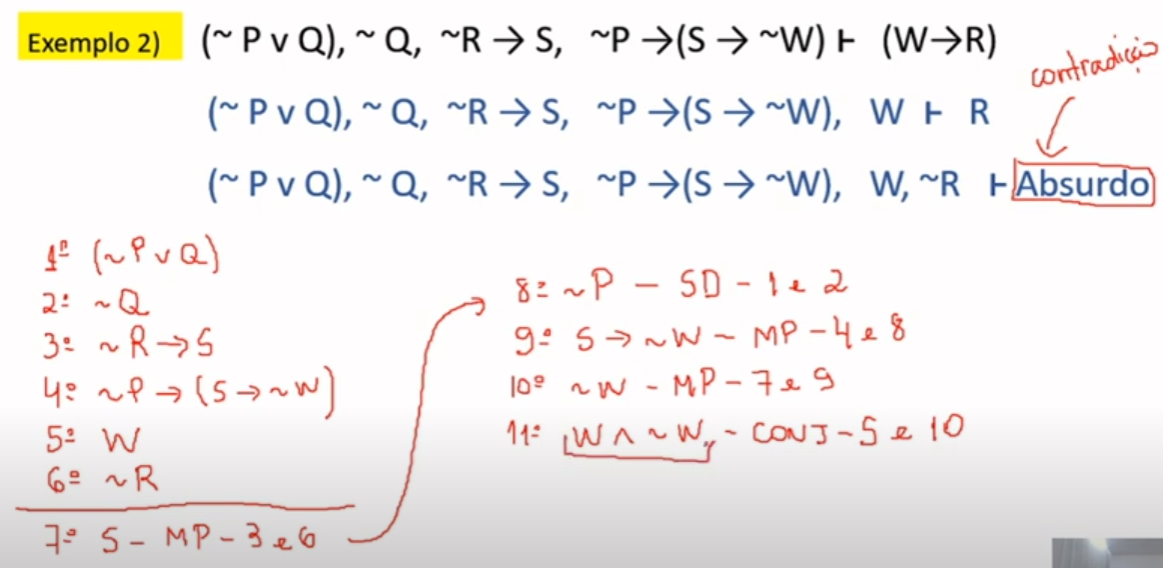 Exemplo 2) (~ P v Q), ~ Q, ~R → S, ~P →(S → ~W) ⊢ (W→R)
contradição
(~ P v Q), ~ Q, ~R → S, ~P →(S → ~W), W ⊢ R
(~ P v Q), ~ Q, ~R → S, ~P →(S → ~W), W, ~R ⊢ Absurdo
1º (~P v Q)
2º ~Q
3º ~R→S
4º ~P → (S→~W)
5º W
6º ~R
7º S - MP - 3 e 6
8º ~P - SD - 1 e 2
9º S → ~W - MP - 4 e 8
10º ~W - MP - 7 e 9
11º W ∧ ~W - CONJ - 5 e 10